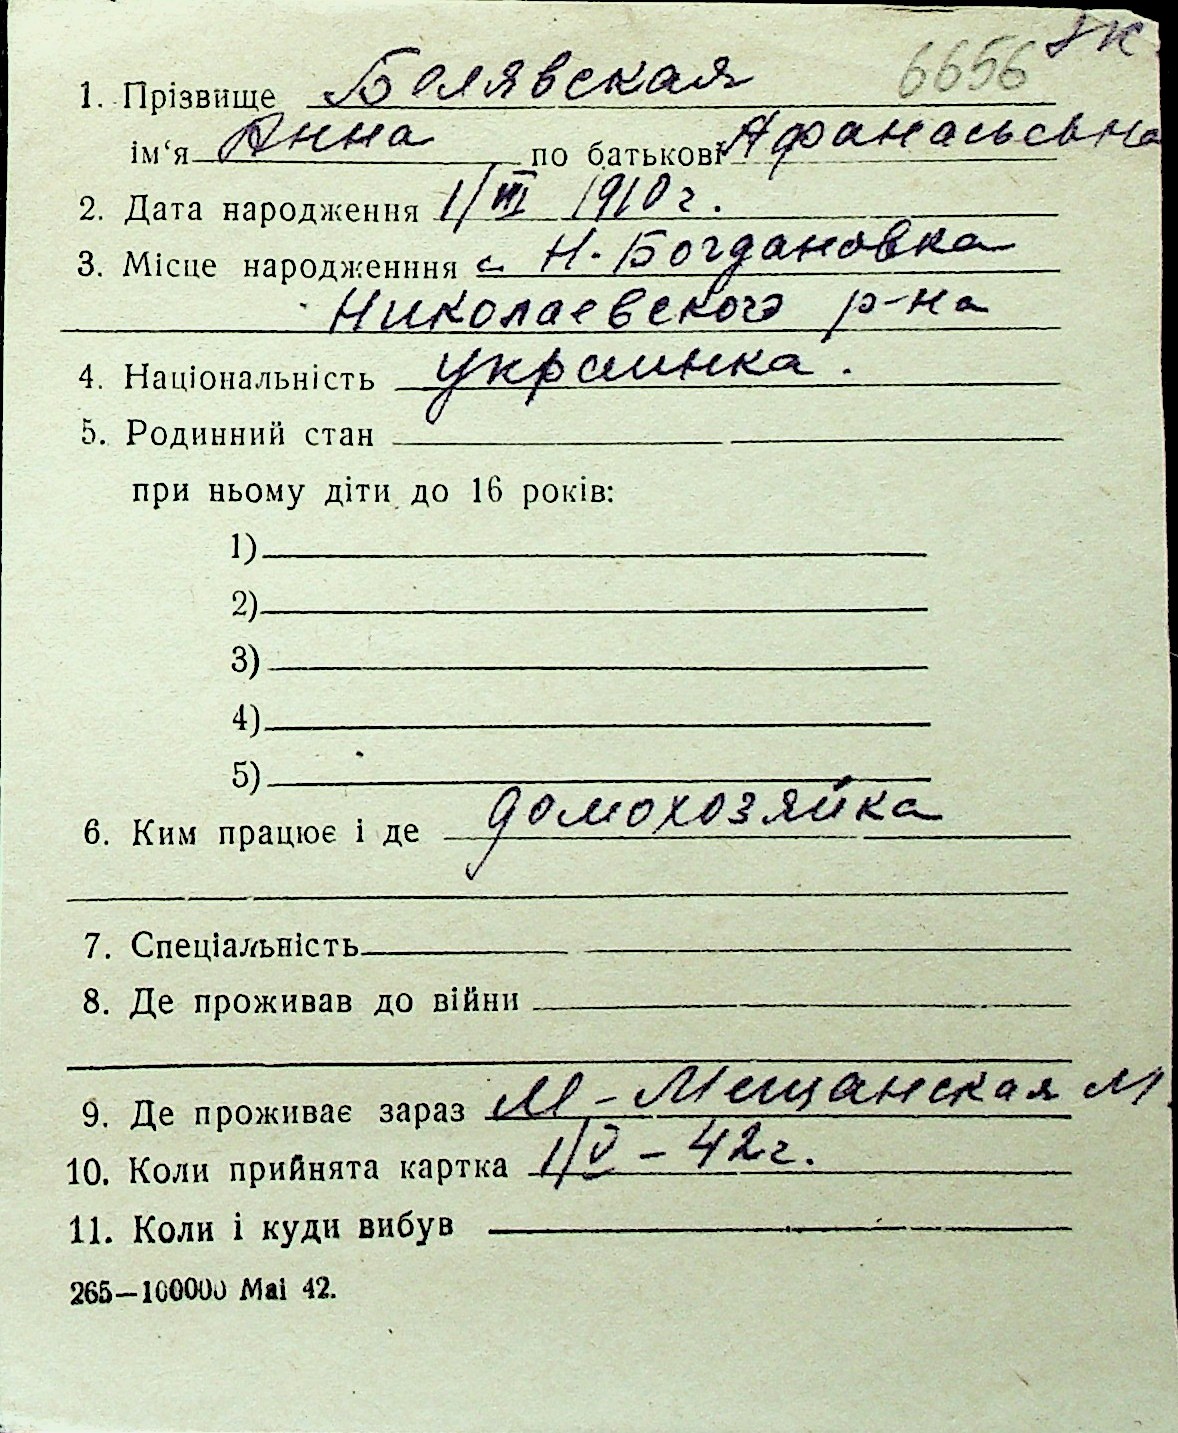 6656
1. Прізвище Белявская
ім‘я Анна по батькові Афанасьевна
2. Дата народження 1/III 1910 г.
3. Місце народженння с. Н. Богдановка
Николаевского р-на
4. Національність украинка.
5. Родинний стан
при ньому діти до 16 років:
1)
2)
3)
4)
5)
6. Ким працює і де домохозяйка
7. Спеціальність
8. Де проживав до війни
9. Де проживає зараз М-Мещанская
10. Коли прийнята картка 1/V – 42 г.
11. Коли і куди вибув
265—100000 Mai 42.